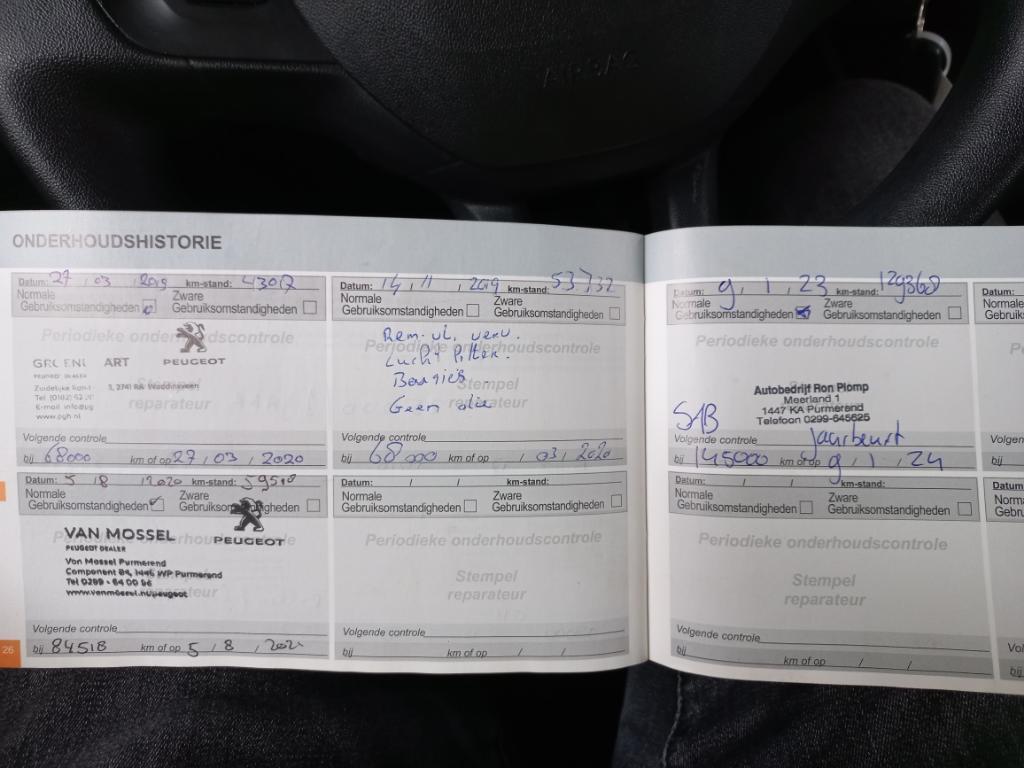 AIRBAG
ONDERHOUDSHISTORIE
Datum: 27 / 03 / 2019 km-stand: 43017
Normale
Gebruiksomstandigheden
Zware
Gebruiksomstandigheden
Periodieke onderhoudscontrole
PEUGEOT
Zuidelijke 3, 2741 RA Waddinxveen
Stempel
reparateur
Volgende controle
bij 68000 km of op 27 / 03 / 2020
Datum: 14 / 11 / 2019 km-stand: 53732
Normale
Gebruiksomstandigheden
Zware
Gebruiksomstandigheden
Rem. vl. verv.
Periodieke onderhoudscontrole
Lucht filter.
Bougies
Stempel
Geen olie
reparateur
Volgende controle
bij 68000 km of op / 03 / 2020
Datum: 5 / 8 / 2020 km-stand: 59518
Normale
Gebruiksomstandigheden
Zware
Gebruiksomstandigheden
Periodieke onderhoudscontrole
VAN MOSSEL
PEUGEOT DEALER
PEUGEOT
Van Mossel Purmerend
Component 84, 1446 WP Purmerend
Tel 0299 - 64 00 56
www.vanmossel.nl/peugeot
reparateur
Volgende controle
bij 84518 km of op 5 / 8 / 2021
26
Datum: / / km-stand:
Normale
Gebruiksomstandigheden
Zware
Gebruiksomstandigheden
Periodieke onderhoudscontrole
Stempel
reparateur
Volgende controle
bij km of op / /
Datum: 9 / 1 / 23 129368
Normale
Gebruiksomstandigheden
Zware
Gebruiksomstandigheden
Periodieke onderhoudscontrole
Autobedrijf Ron Plomp
Meerland 1
1447 KA Purmerend
Telefoon 0299-645625
Volgende controle jaarbeurt
bij 145000 km of op 9 / 1 / 24
Datum: / / km-stand:
Normale
Gebruiksomstandigheden
Zware
Gebruiksomstandigheden
Periodieke onderhoudscontrole
Stempel
reparateur
Volgende controle
bij km of op / /
Datum:
bij
Datum:
bij